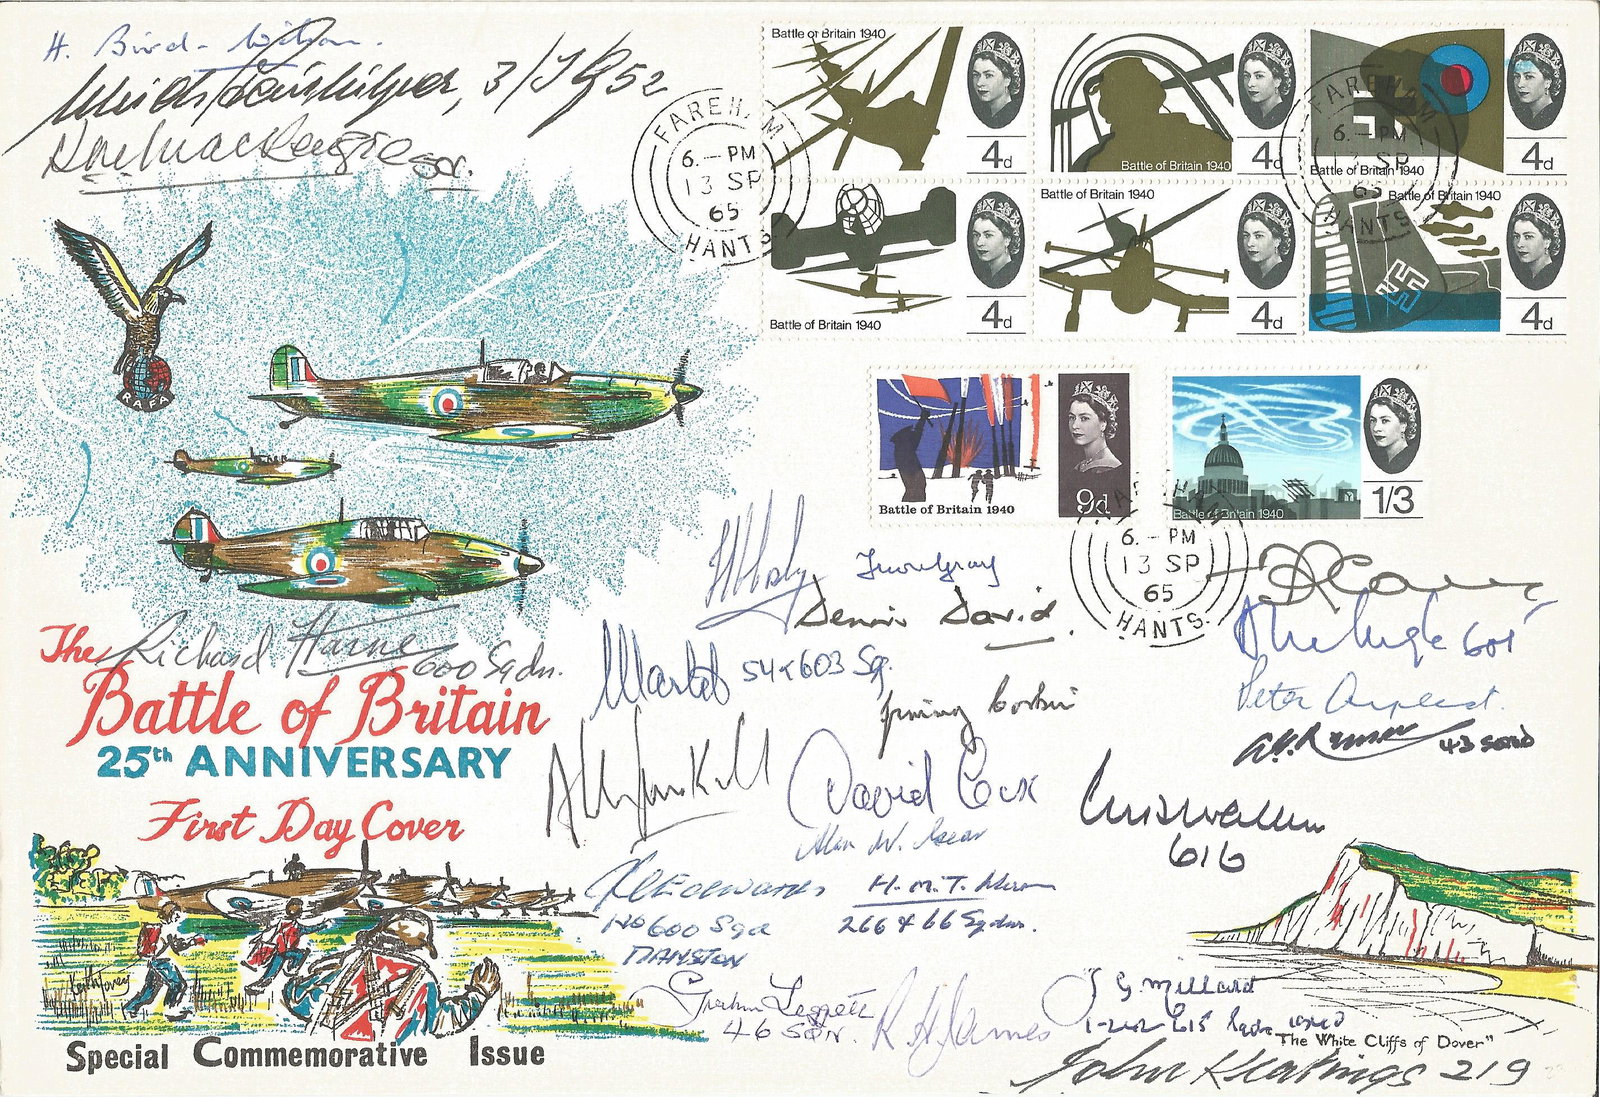 H. Bird-Wilson.
3/JG52
Ken MacKenzie
RAFA
FAREHAM
6.-PM
13 SP
65
HANTS.
Battle of Britain 1940
4d
Battle of Britain 1940
4d
FAREHAM
6.-PM
13 SP
65
HANTS.
Battle of Britain 1940
4d
Battle of Britain 1940
4d
Battle of Britain 1940
4d
Battle of Britain 1940
4d
Battle of Britain 1940
9d
Battle of Britain 1940
1/3
6.-PM
13 SP
65
HANTS.
Dennis David
Richard Haine 600 Sqdn.
54 & 603 Sq.
601
Peter
43 SQND
Jimmy Corbin
The
Battle of Britain
25th ANNIVERSARY
First Day Cover
David Cox
Alan W. Gear
616
Edwards
No 600 Sqd
MANSTON
H.M.T.
266 & 66 Sqdns.
Graham Leggett
46 SQN.
R H James
J G Millard
1-242 615
Keith Tovey
"The White Cliffs of Dover"
John Keatings 219
Special Commemorative Issue